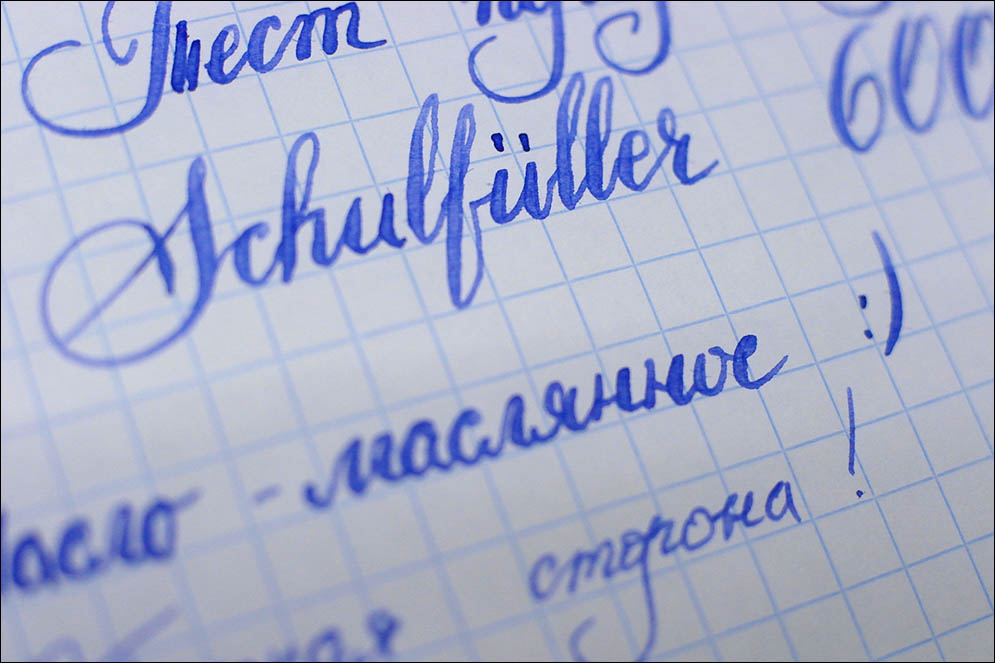 Тест
Schulfüller 600
Масло - маслянное :)
сторона !